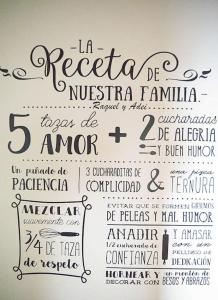 -LA-
Receta DE
NUESTRA FAMILIA.
Raquel y Adei
5 tazas de AMOR + 2 cucharadas DE ALEGRÍA Y BUEN HUMOR
Un puñado de PACIENCIA
3 CUCHARADITAS DE COMPLICIDAD
& una pizca TERNURA
MEZCLAR suavemente con 3/4 DE TAZA de respeto
EVITAR QUE SE FORMEN GRUMOS
DE PELEAS Y MAL HUMOR
AÑADIR 1/2 cucharada de CONFIANZA
Y AMASAR CON UN PELLIZCO DE DEDICACIÓN
HORNEAR Y DECORAR CON un montón de BESOS Y ABRAZOS